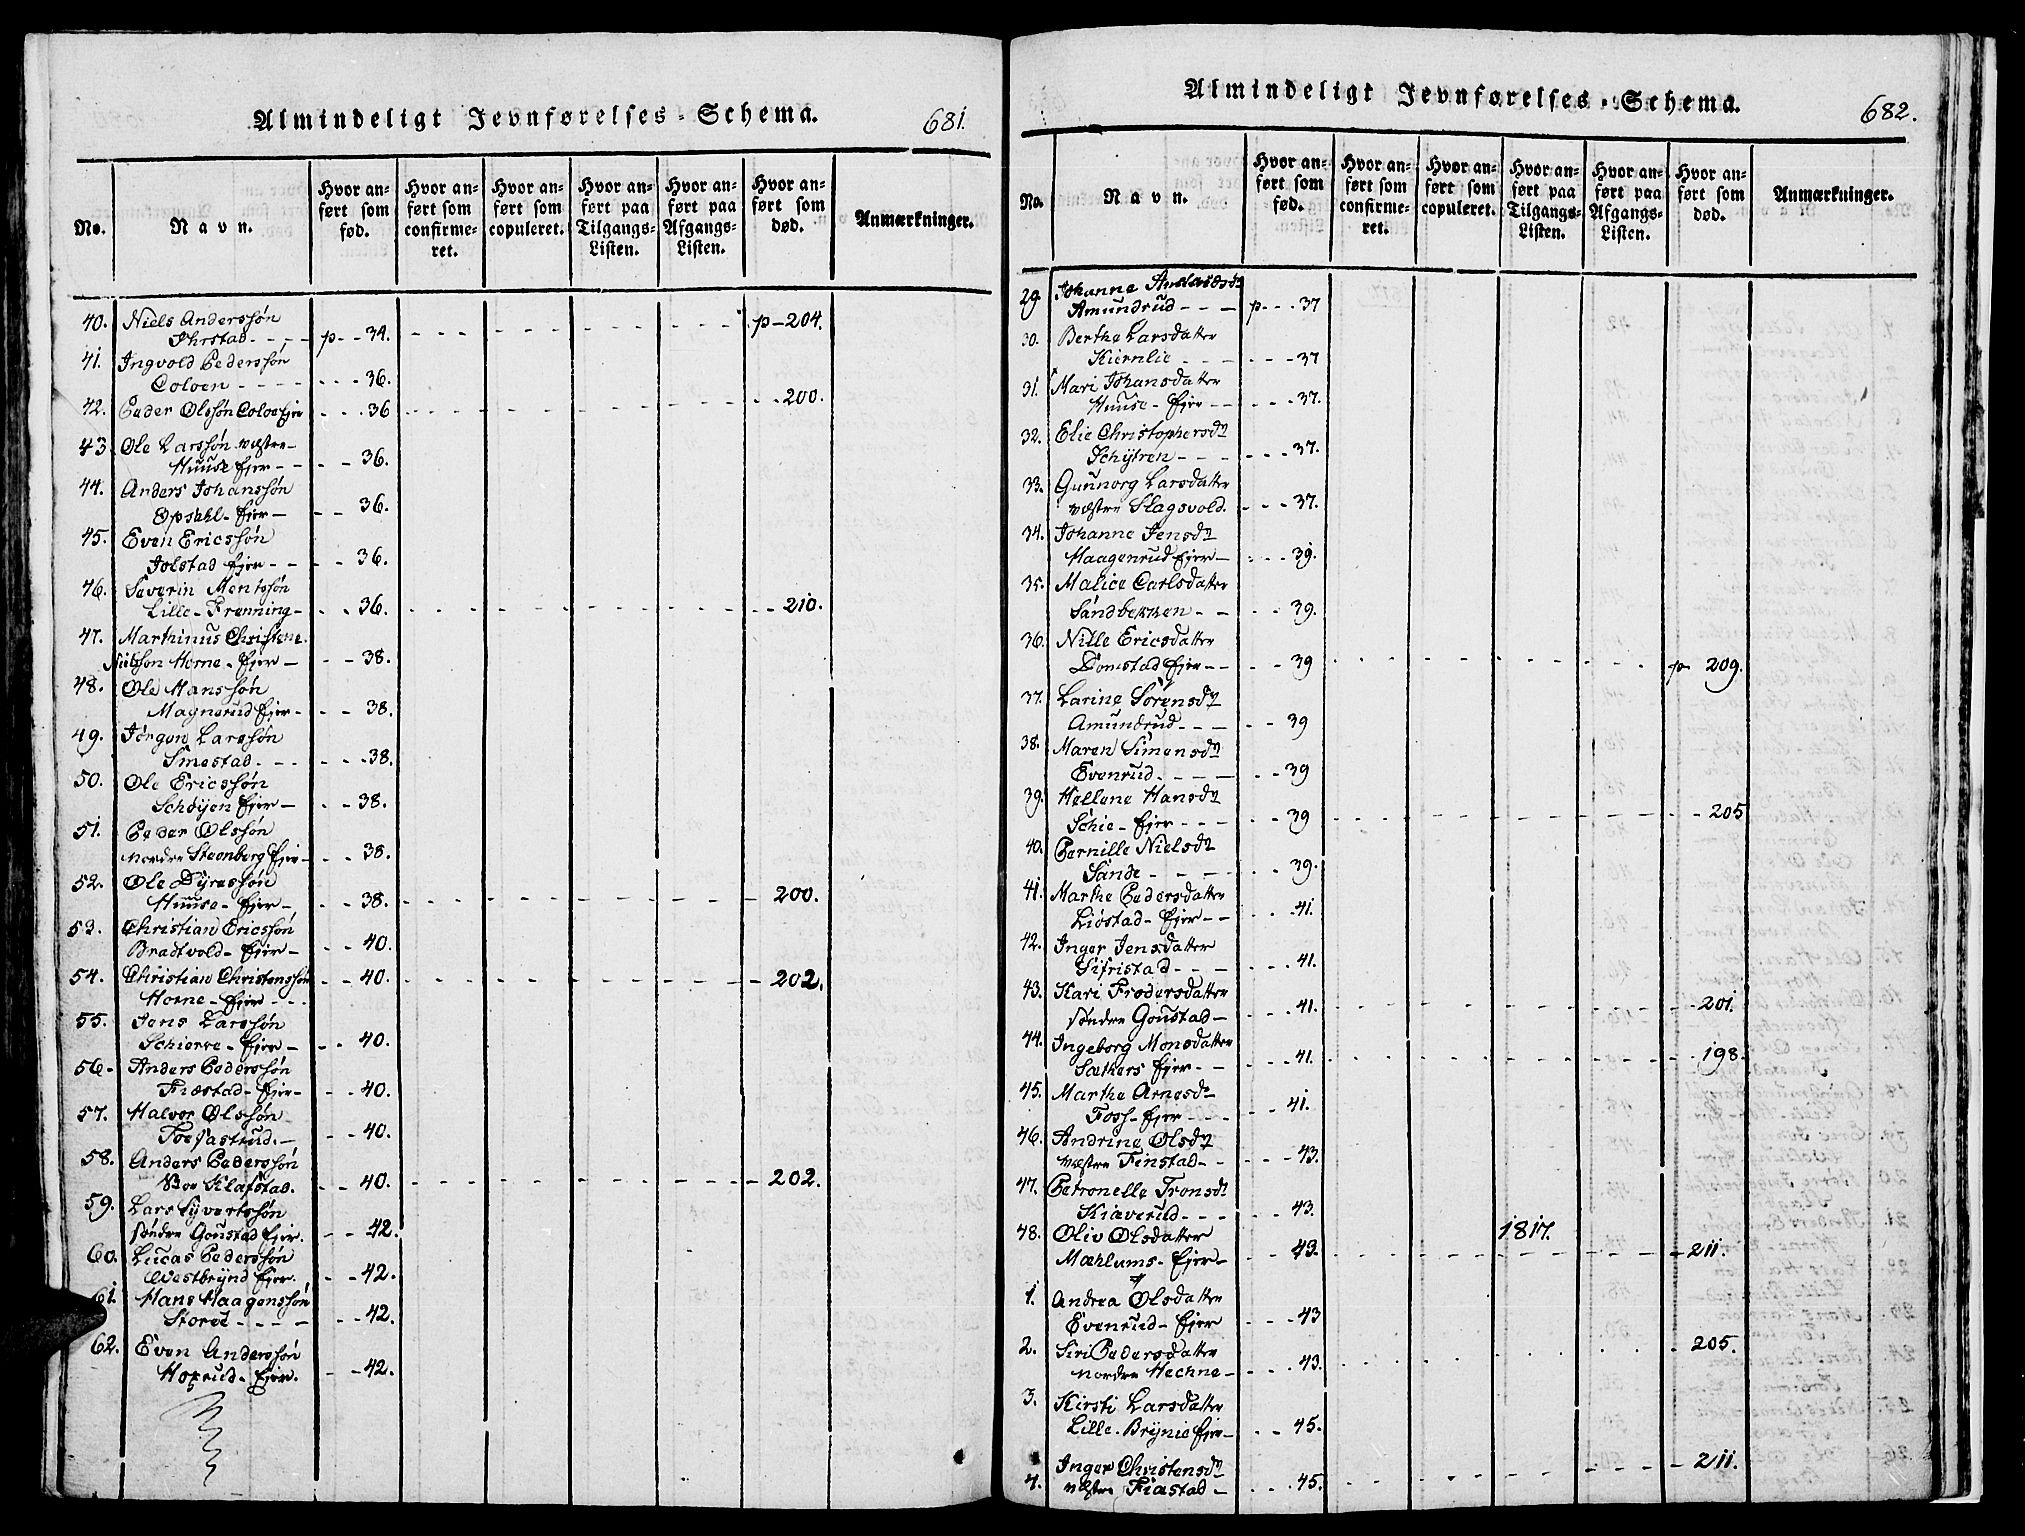 Almindeligt Jevnførelses-Schema.
681.
No.
Navn.
Hvor anført som fød.
Hvor anført som confirmeret.
Hvor anført som copuleret.
Hvor anført paa Tilgangs-Listen.
Hvor anført paa Afgangs-Listen.
Hvor anført som død.
Anmærkninger.
40. Niels Anderssøn
Ihrstad - - - - p - - 34. - - - p - 204.
41. Ingvold Pederssøn
Coloen - - - - - - - 36.
42. Peder Olssøn Coloe Ejer - - - 36 - - - 200.
43. Ole Larssøn væstre -
Huuse Ejer - - - - 36.
44. Anders Johanssøn
Opsahl - Ejer - - - 36.
45. Even Ericssøn
Jolstad Ejer - - - - 36.
46. Severin Mentssøn
Lille - Frenning - - - 36. - - - 210.
47. Marthinus Christene
Niilsson Horne - Ejer - - - 38.
48. Ole Hanssøn
Magnerud Ejer - - - 38.
49. Jörgen Larssøn
Smestad - - - - - - 38.
50. Ole Ericssøn
Schöyen Ejer - - - 38.
51. Peder Olssøn
Nordre Steenberg Ejer - - - 38.
52. Ole Dyressøn
Huuse - Ejer - - - 38. - - - 200.
53. Christian Ericssøn
Bradtvold - Ejer - - - 40.
54. Christian Christenssøn - - 40. - - - 202.
Horne - Ejer - - -
55. Jens Larssøn
Schierve - Ejer - - - 40.
56. Anders Pederssøn
Fiæstad - Ejer - - - 40.
57. Halvor Olssøn
Toefastrud. - - - 40.
58. Anders Pederssøn
Boe Klafstad. - - 40. - - - 202.
59. Lars Syvertssøn
søndre Goustad Ejer. - - 42.
60. Lucas Pederssøn
Westbrynd Ejer. - - 42.
61. Hans Haagenssøn
Storöe - - - - - - 42.
62. Even Anderssøn
Hoxrud - Ejer. - - 42.
Almindeligt Jevnførelses-Schema.
682.
No.
Navn.
Hvor anført som fød.
Hvor anført som confirmeret.
Hvor anført som copuleret.
Hvor anført paa Tilgangs-Listen.
Hvor anført paa Afgangs-Listen.
Hvor anført som død.
Anmærkninger.
29 Johanne
Amundrud - - - p - - - 37
30. Berthe Larsdatter
Kiernlie - - - - - - 37
31. Mari Johansdatter
Huuse - Ejer - - - - - 37.
32. Elie Christophersdr
Schytren - - - - - - 37.
33. Gunnorg Larsdatter
væstre Slagsvold. - - - 37.
34. Johanne Jensdr
Haagenrud Ejer - - - - 39.
35. Malice Carlsdatter
Sandbekken - - - - 39.
36. Nille Ericsdatter
Domstad Ejer - - - - 39 - - - p - 209.
37. Larine Sörensdr
Amundrud - - - - - 39
38. Maren Simensdr
Evenrud. - - - - - - 39
39. Hellene Hansdr
Schie - Ejer - - - - - 39 - - - 205
40. Pernille Nielsdr
Sande - - - - - - 39.
41. Marthe Pedersdatter
Liöstad - Ejer - - - - - 41.
42. Inger Jensdatter
Sifristad - - - - - - 41.
43. Kari Frodersdatter
söndre Goustad - - - - 41. - - - 201.
44. Ingeborg Monsdatter
Sæthers Ejer - - - - - 41. - - - 198.
45. Marthe Arnesdr
Foss - Ejer - - - - - 41.
46. Andrine Olsdr
væstre Finstad - - - - - 43.
47. Petronelle Tronsdr
Kiæverud - - - - - 43.
48. Oliv Olsdatter 1817.
Mæhlums - Ejer - - - 43. - - - 211.
1. Andrea Olsdatter
Evenrud - Ejer - - - 43
2. Siri Pedersdatter
nordre Hechne - - - - 43. - - - 205.
3. Kirsti Larsdatter
Lille - Brynie Ejer - - - 45.
4. Inger Christensdr
væstre Fiæstad - - - - 45. - - - 211.